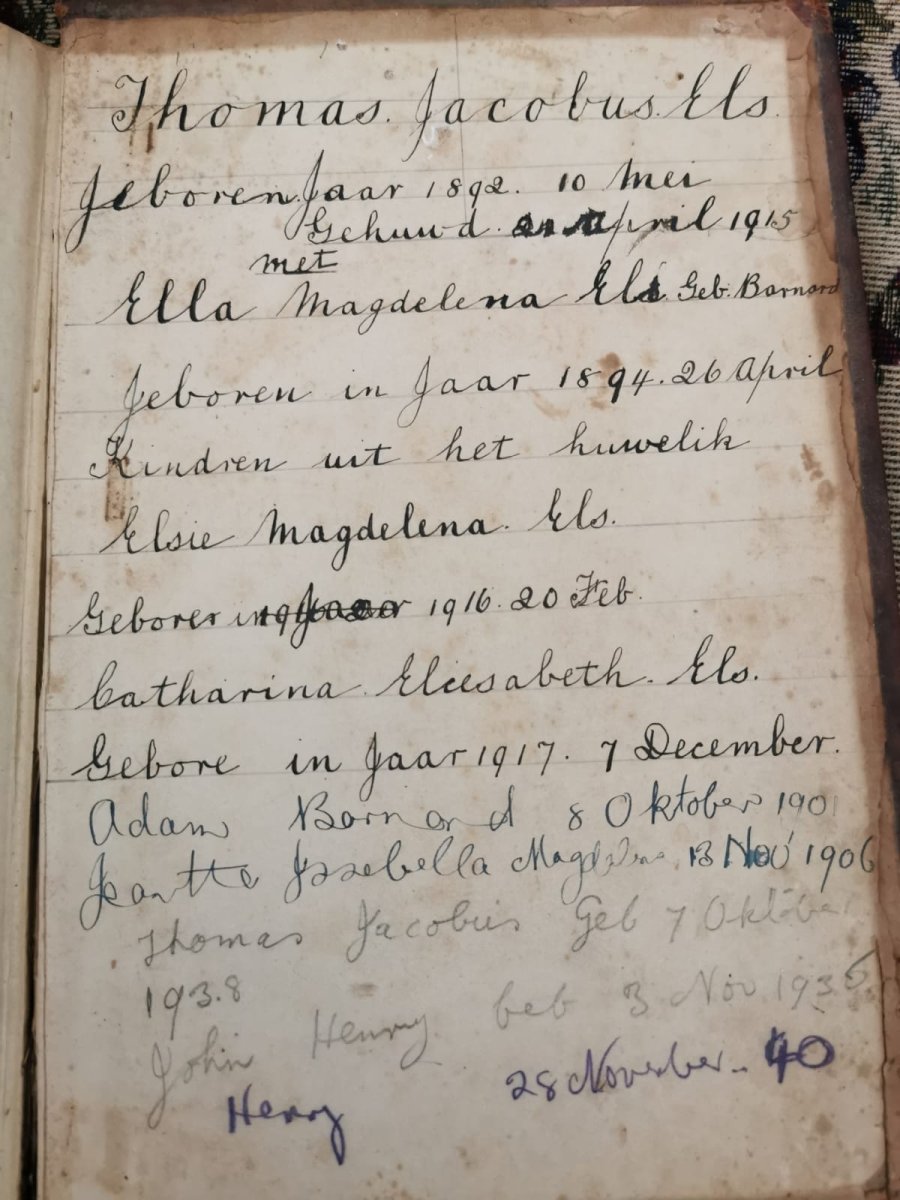 Thomas. Jacobus. Els.
Geboren. Jaar 1892. 10 Mei
Gehuwd. April 1915
met
Ella Magdelena Els. Geb. Barnard
Geboren in Jaar 1894. 26 April
Kindren uit het huwelik
Elsie Magdelena. Els.
Geboren in 1916. 20 Feb.
Catharina. Eliesabeth. Els.
Gebore in Jaar 1917. 7 December.
Adam Barnard 8 Oktober 1901
Issebella Magdelena 13 Nov 1906
Thomas Jacobus Geb 7 Oktober
1938
John Henry 3 Nov 1936
Henry 28 November. 40